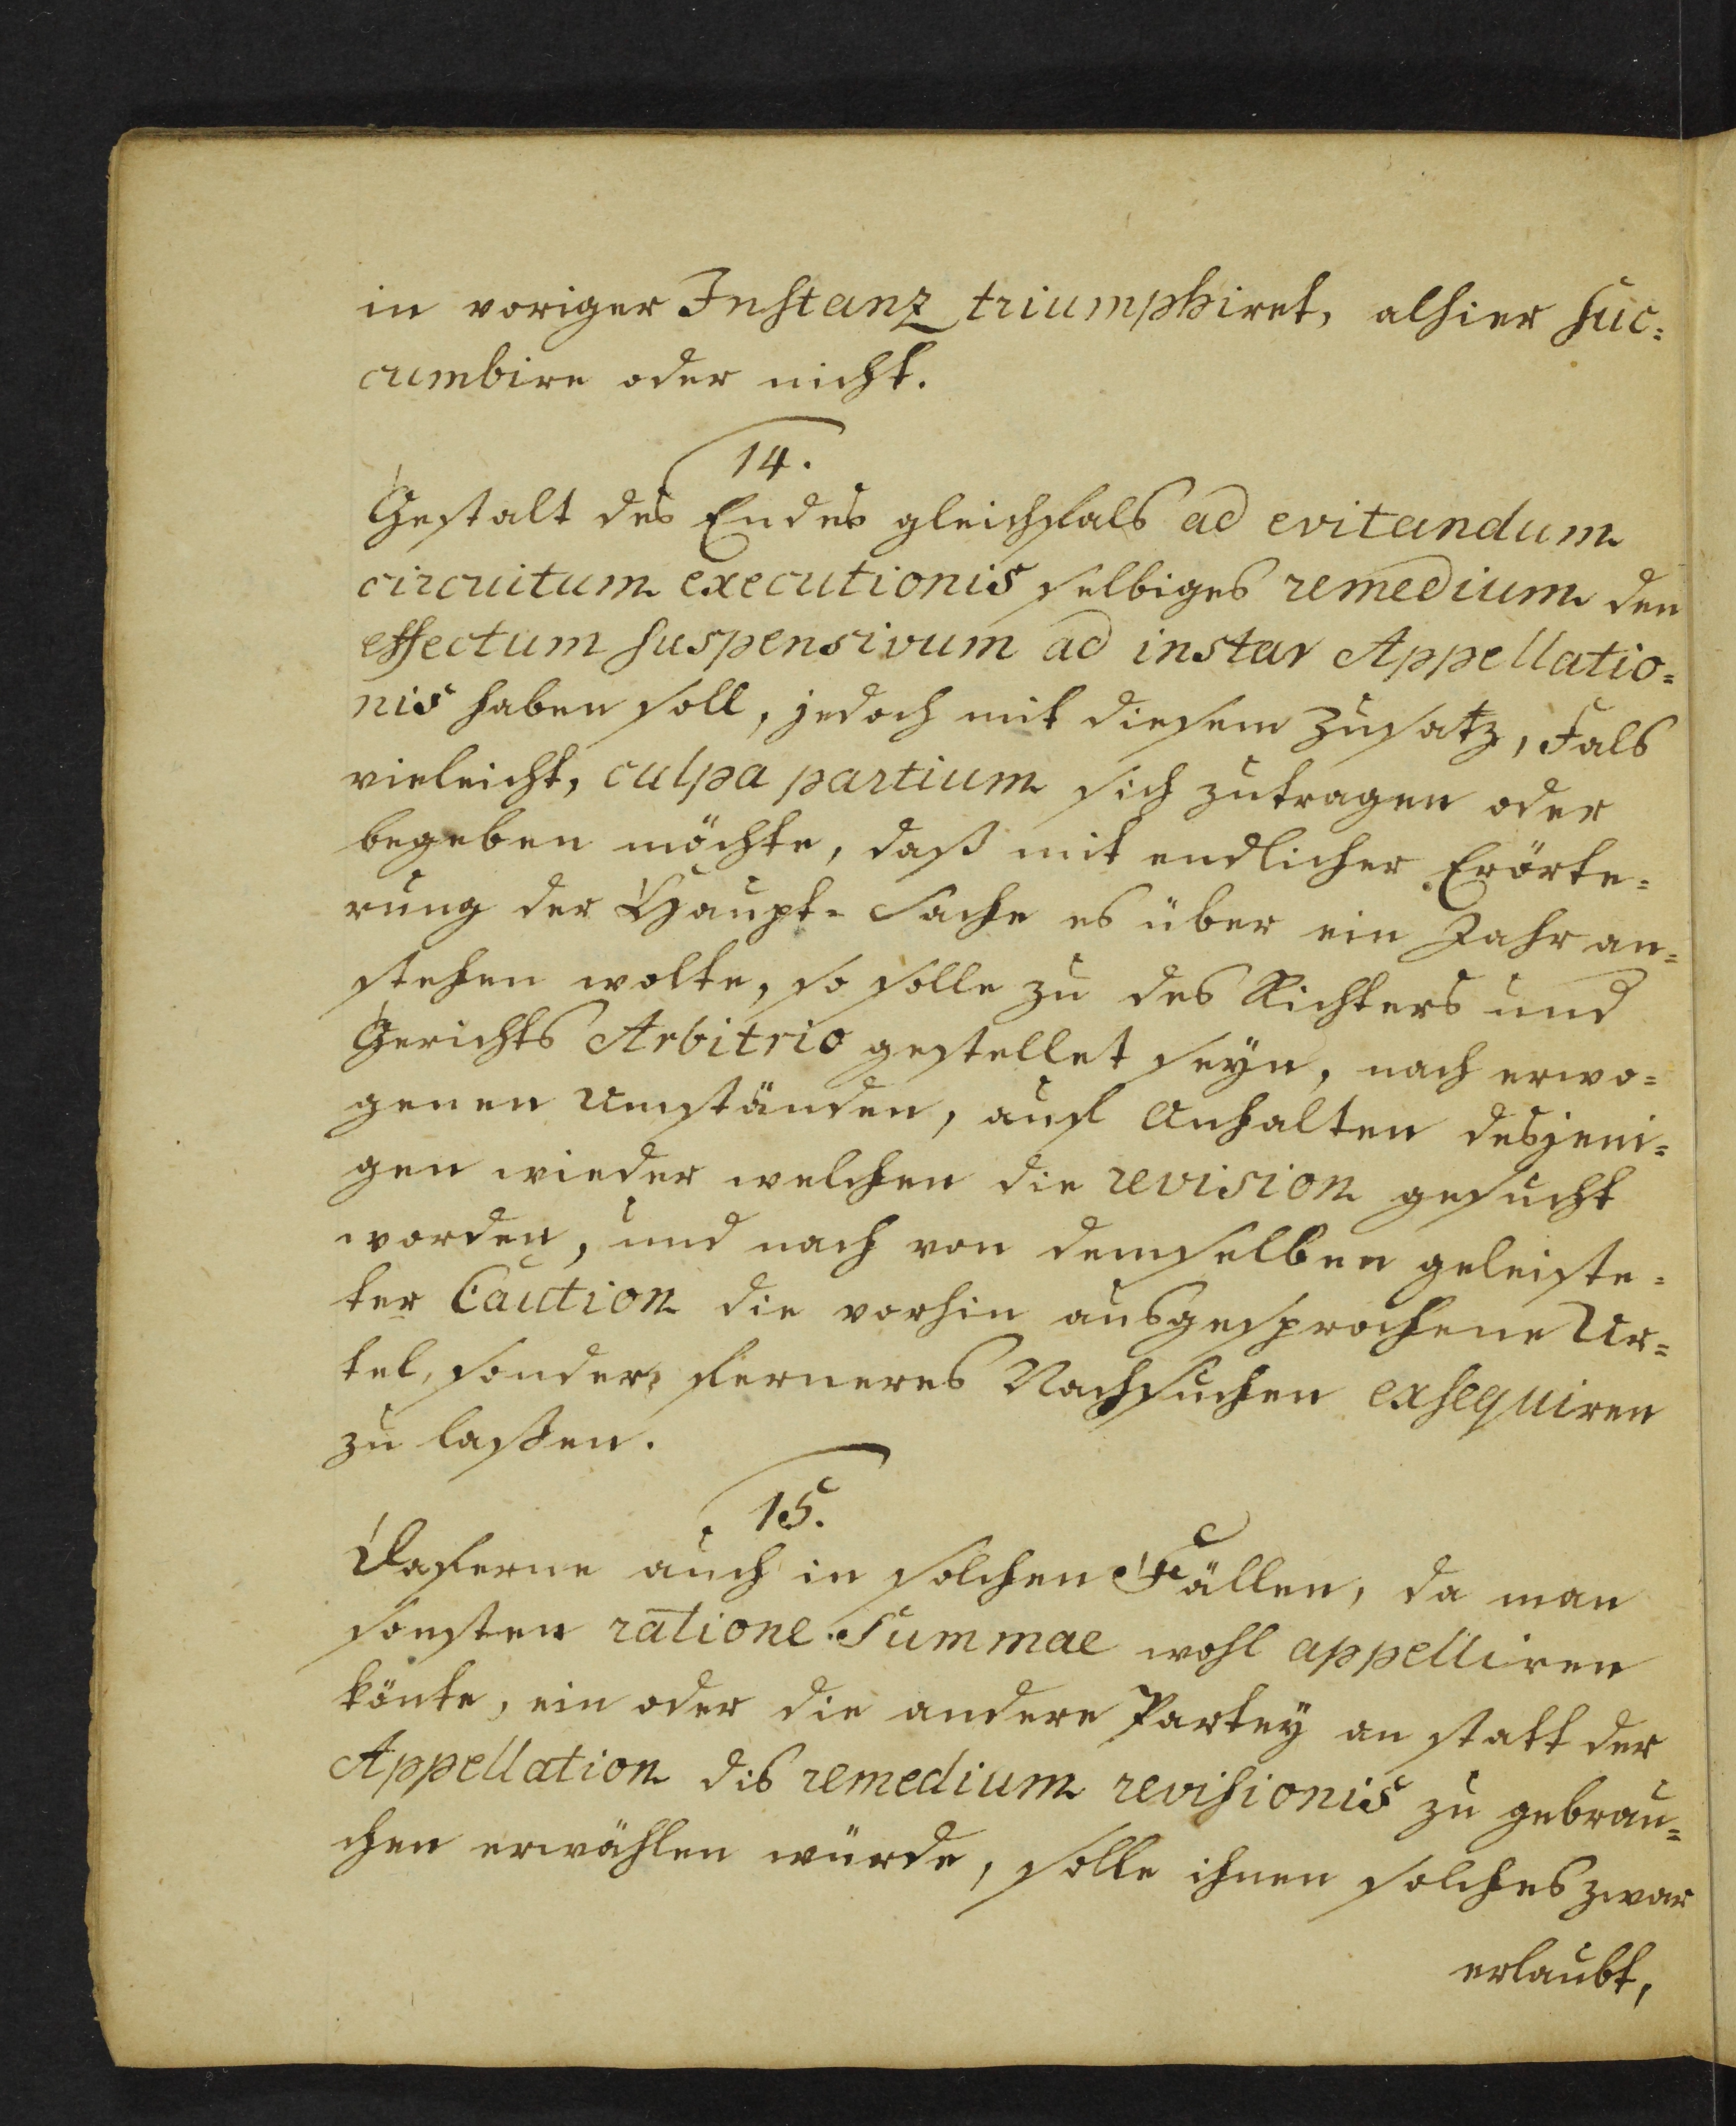 in voriger Instanz triumphiret, alhier suc-
cumbire oder nicht.
14.
Gestalt des Endes gleichfals ad evitandum
circuitum executionis selbiges remedium den
effectum suspensivum ad instar Appellatio-
nis haben soll, jedoch mit diesem Zusatz, Fals
vieleicht, culpa partium sich zutragen oder
begeben möchte, daß mit endlicher Erörte-
rung der Haupt-Sache es über ein Jahr an-
stehen wolte, so solle zu des Richters und
Gerichts Arbitrio gestellet seyn, nach erwo-
genen Umständen, auf Anhalten desjeni-
gen wieder welchen die revision gesucht
worden, und nach von demselben geleiste-
ter Caution die vorhin ausgesprochene Ur-
tel, sonder ferneres Nachsuchen exsequiren
zu laßen.
15.
Daferne auch in solchen Fällen, da man
sonsten ratione Summae wohl appelliren
könte, ein oder die andere Partey an statt der
Appellation dis remedium revisionis zu gebrau-
chen erwählen würde, solle ihnen solches zwar
erlaubt,